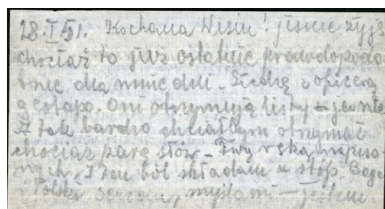 28.I 51. Kochana Wisiu! jeszcze żyję
chociaż to już ostatnie prawdopodo
bnie dla mnie dni. Siedzę z oficerą
gestapo. Oni otrzymują listy – ja nie
A tak bardzo chciałbym otrzymać
chociaż parę słów – Twą ręką napisa
nych. Ten ból składam u stóp Boga
Polski